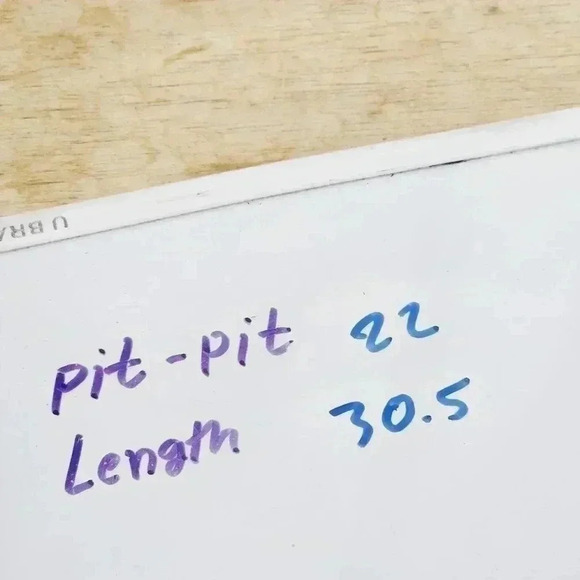 U BRA
pit-pit 22
Length 30.5